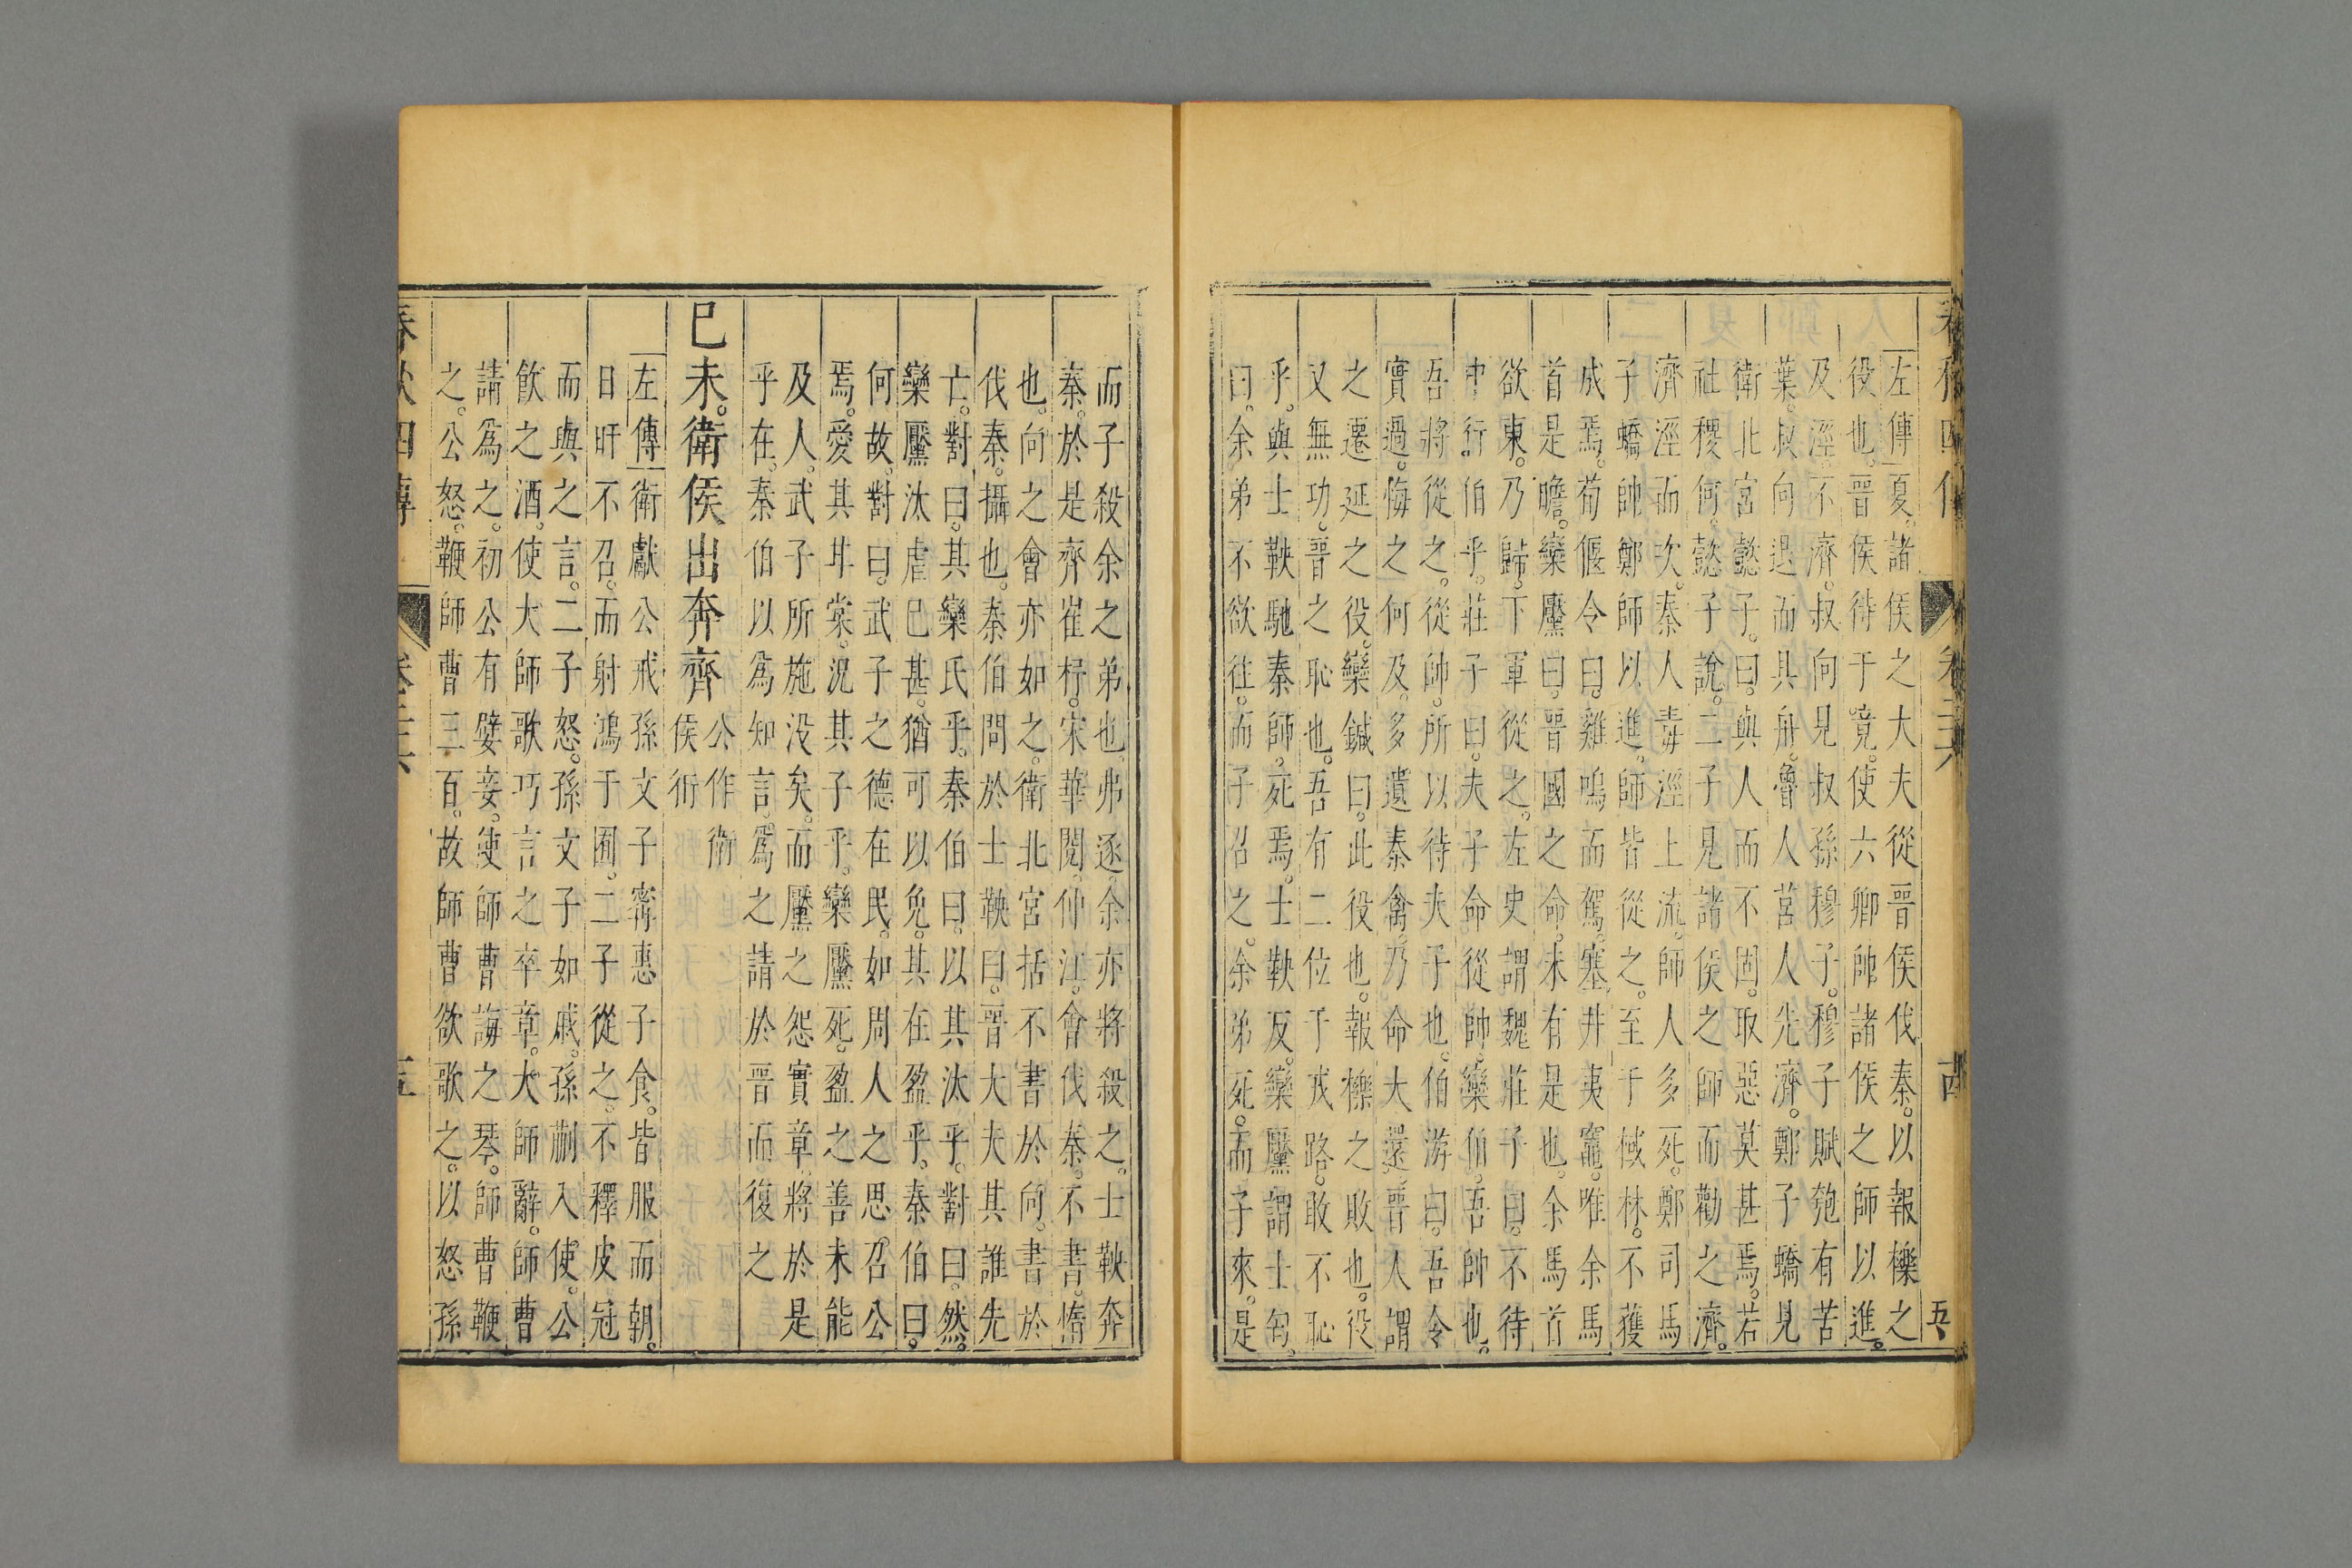 左傳夏。諸侯之大夫從晉侯伐秦。以報櫟之
役也。晉侯待于竟。使六卿帥諸侯之師以進。
及涇。不濟。叔向見叔孫穆子。穆子賦匏有苦
葉。叔向退而具舟。魯人莒人先濟。鄭子蟜見
衛北宮懿子。曰。與人而不固。取惡莫甚焉。若
社稷何。懿子說。二子見諸侯之師而勸之濟。
濟涇而次。秦人毒涇上流。師人多死。鄭司馬
子蟜帥鄭師以進。師皆從之。至于棫林。不獲
成焉。荀偃令曰。雞鳴而駕。塞井夷竈。唯余馬
首是瞻。欒黶曰。晉國之命。未有是也。余馬首
欲東。乃歸。下軍從之。左史謂魏莊子曰。不待
中行伯乎。莊子曰。夫子命從帥。欒伯。吾帥也。
吾將從之。從帥。所以待夫子也。伯游曰。吾令
實過。悔之何及。多遺秦禽。乃命大還。晉人謂
之遷延之役。欒鍼曰。此役也。報櫟之敗也。役
又無功。晉之恥也。吾有二位于戎路。敢不恥
乎。與士鞅馳秦師。死焉。士鞅反。欒黶謂士匄。
曰。余弟不欲往。而子召之。余弟死。而子來。是
而子殺余之弟也。弗逐。余亦將殺之。士鞅奔
秦。於是齊崔杼。宋華閱。仲江。會伐秦。不書。惰
也。向之會亦如之。衛北宮括不書於向。書於
伐秦。攝也。秦伯問於士鞅曰。晉大夫其誰先
亡。對曰。其欒氏乎。秦伯曰。以其汰乎。對曰。然。
欒黶汰虐已甚。猶可以免。其在盈乎。秦伯曰。
何故。對曰。武子之德在民。如周人之思召公
焉。愛其甘棠。況其子乎。欒黶死。盈之善未能
及人。武子所施沒矣。而黶之怨實章。將於是
乎在。秦伯以爲知言。爲之請於晉而復之
己未。衛侯出奔齊 公作衛侯衎
左傳衛獻公戒孫文子甯惠子食。皆服而朝。
日旰不召。而射鴻于囿。二子從之。不釋皮冠
而與之言。二子怒。孫文子如戚。孫蒯入使。公
飲之酒。使大師歌巧言之卒章。大師辭。師曹
請爲之。初公有嬖妾。使師曹誨之琴。師曹鞭
之。公怒。鞭師曹三百。故師曹欲歌之。以怒孫